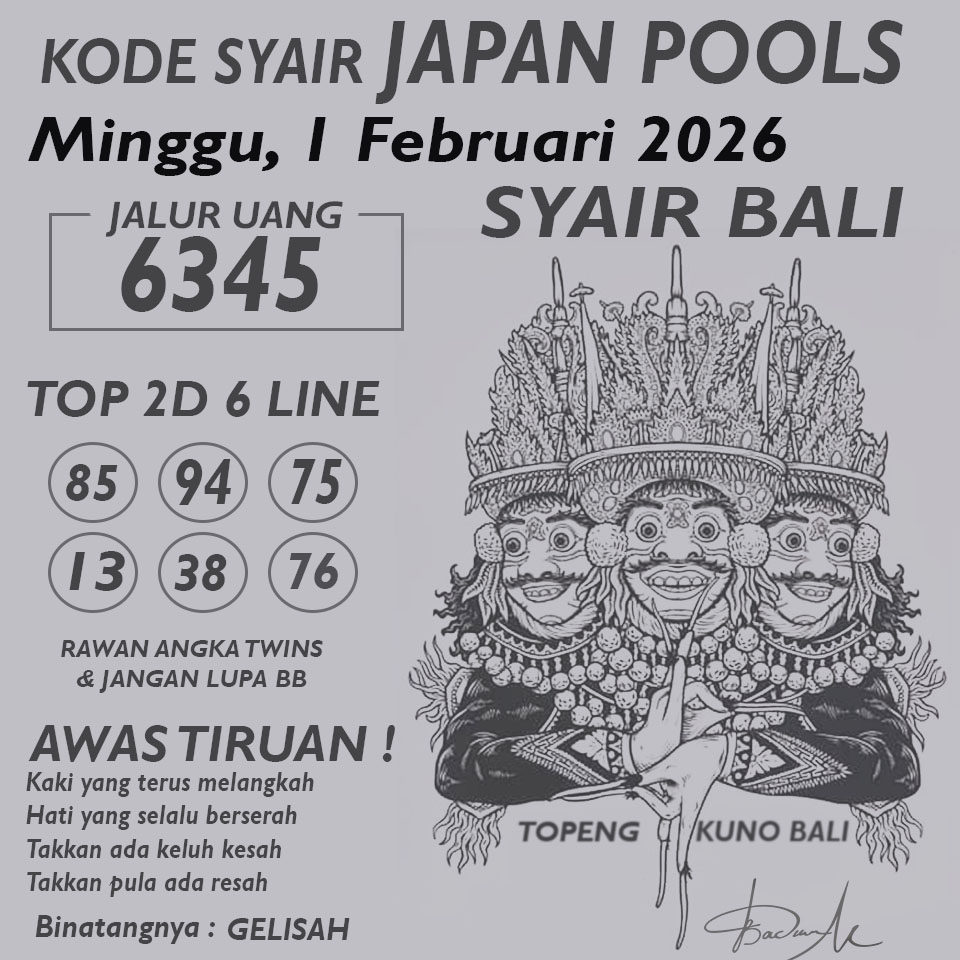 KODE SYAIR JAPAN POOLS
Minggu, 1 Februari 2026
SYAIR BALI
JALUR UANG
6345
TOP 2D 6 LINE
85 94 75
13 38 76
RAWAN ANGKA TWINS
& JANGAN LUPA BB
AWAS TIRUAN !
Kaki yang terus melangkah
Hati yang selalu berserah
Takkan ada keluh kesah
Takkan pula ada resah
Binatangnya : GELISAH
TOPENG KUNO BALI